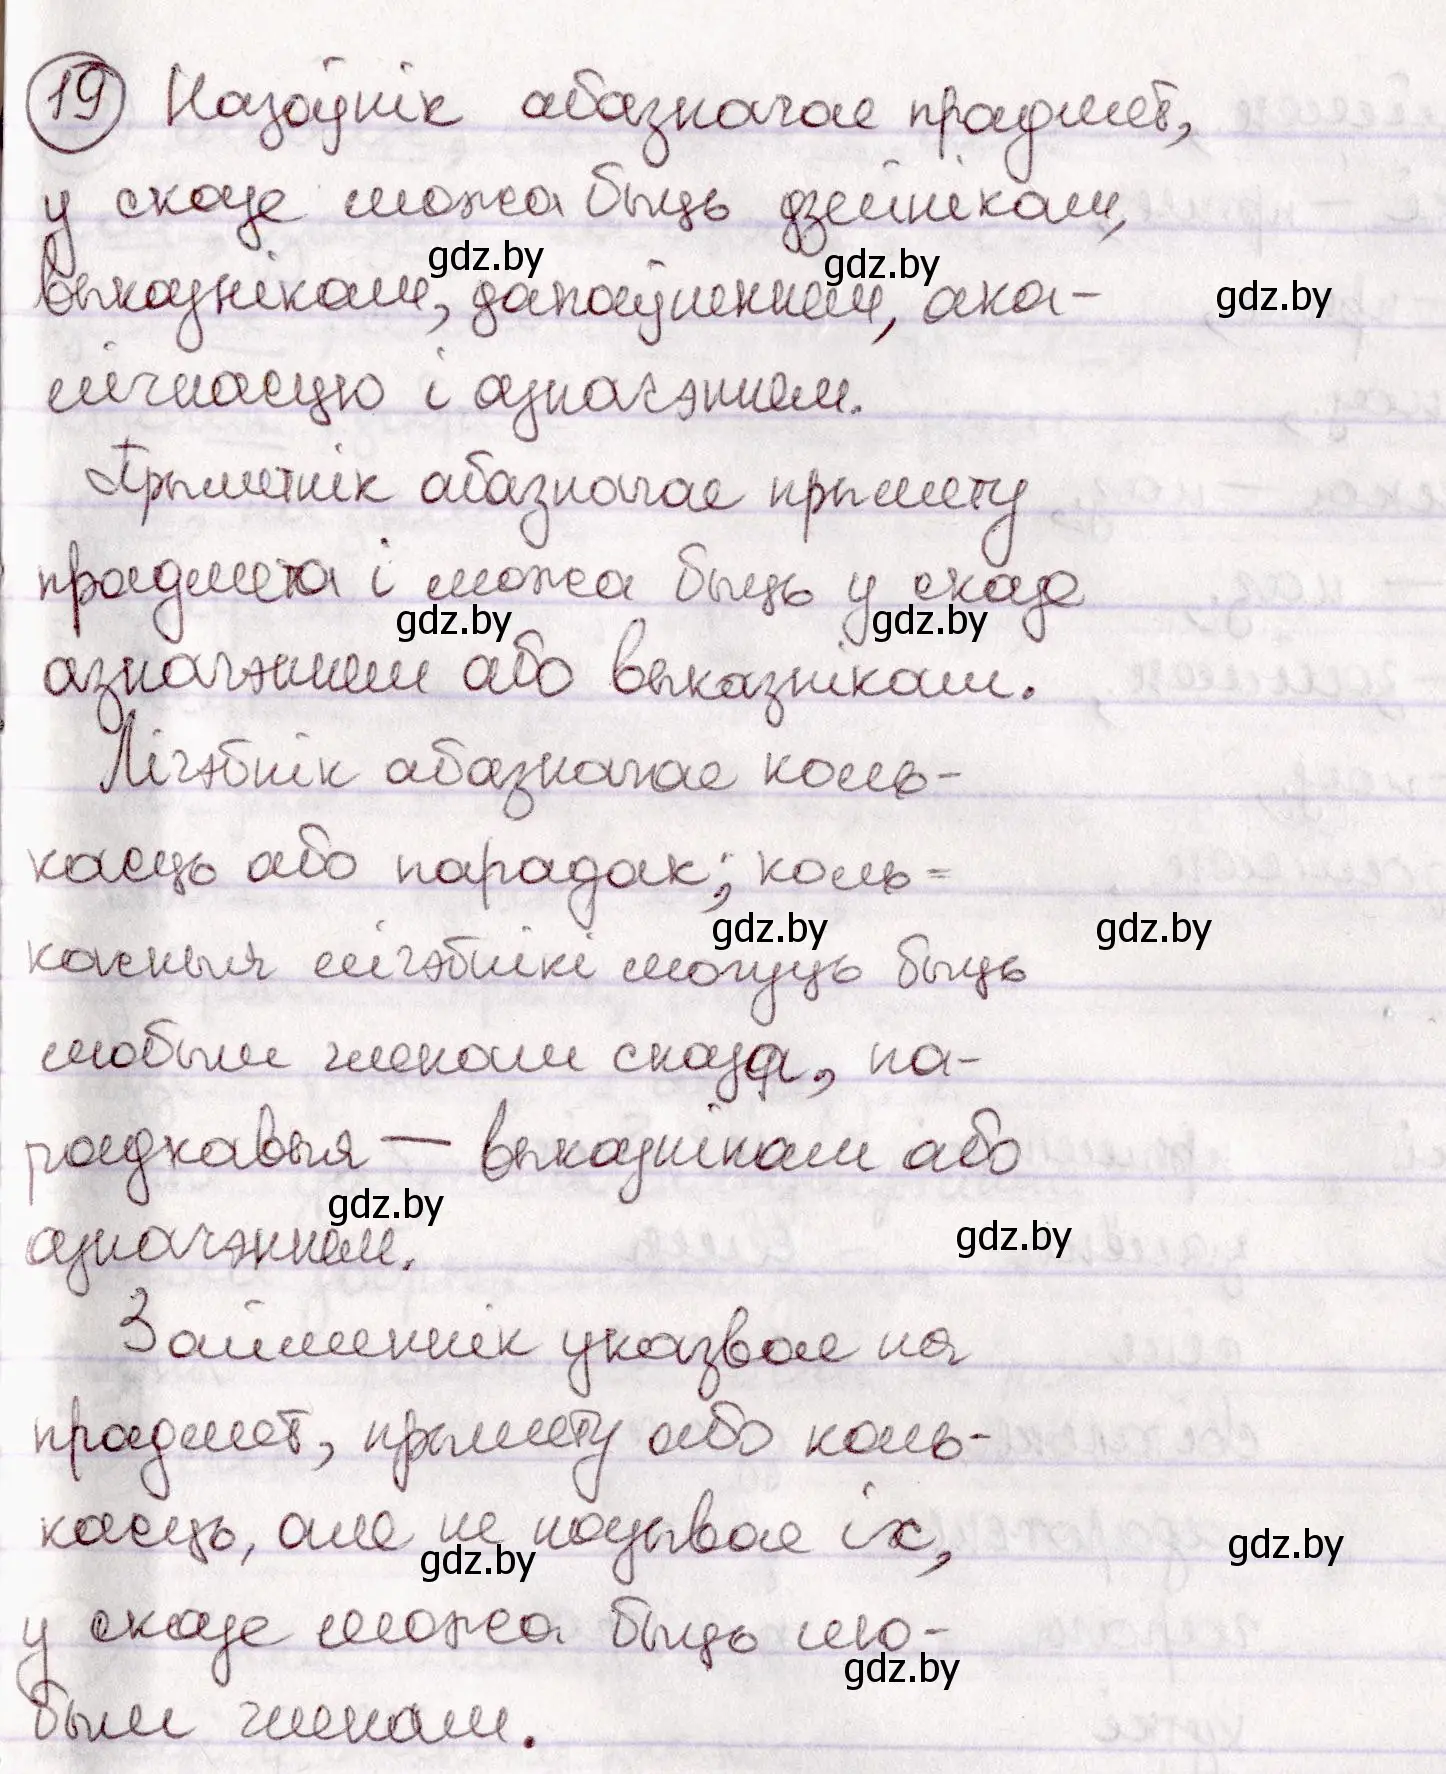 19 Назоўнік абазначае прадмет,
у сказе можа быць дзейнікам,
выказнікам, дапаўненнем, ака-
лічнасцю і азначэннем.
Прыметнік абазначае прымету
прадмета і можа быць у сказе
азначэннем або выказнікам.
Лічэбнік абазначае коль-
касць або парадак; коль-
касныя лічэбнікі могуць быць
любым членам сказа, па-
радкавыя — выказнікам або
азначэннем.
Займеннік указвае на
прадмет, прымету або коль-
касць, але не называе іх,
у сказе можа быць лю-
бым членам.
gdz.by
gdz.by
gdz.by
gdz.by
gdz.by
gdz.by
gdz.by
gdz.by
gdz.by
gdz.by
gdz.by
gdz.by